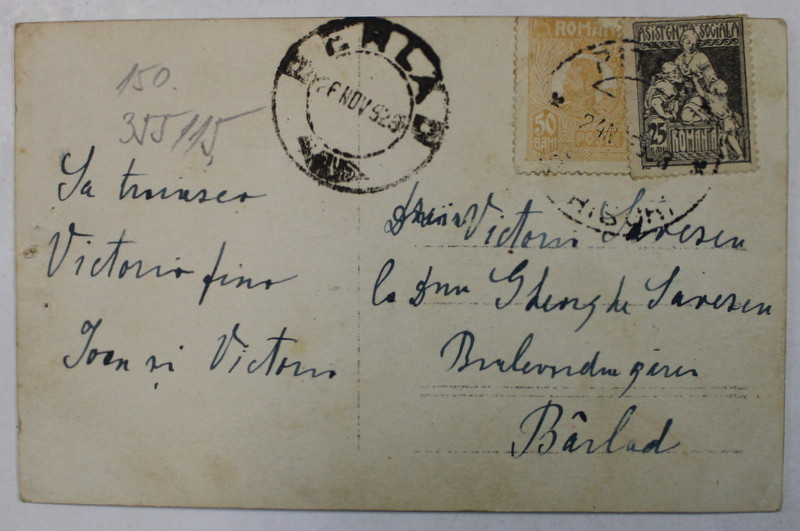 150.
355/15
Sa trăiască
Victoria fina
Ioan și Victoria
BÂRLAD
NOV 925
ROMANIA
50
BANI
POSTA
ASISTENTA SOCIALA
25
BANI
ROMANIA
24 N
Victoria Săvescu
la Dnu Gheorghe Săvescu
Bulevardu gărei
Bârlad